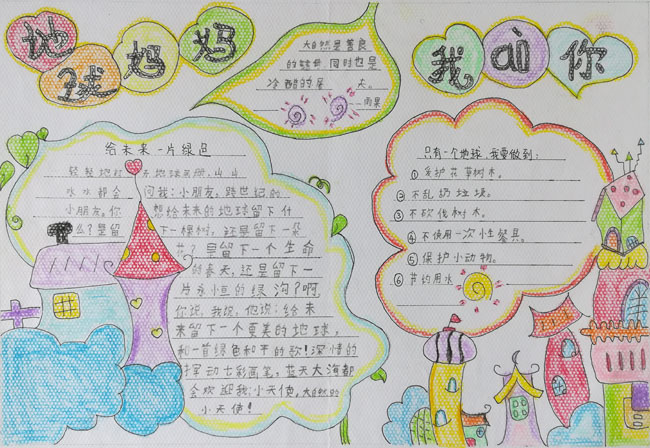 地球妈妈
我ai你
大自然是善良
的慈母,同时也是
冷酷的屠 夫。
雨果
给未来一片绿色
轻轻地打 开地球画册,山山
水水都会 问我:小朋友,跨世纪的
小朋友,你 想给未来的地球留下什
么?是留 下一棵树,还是留下一朵
花?是留下一个生命
的春天,还是留下一
片永恒的绿洲?啊,
你说,我说,他说:给未
来留下一个更美的地球,
和一首绿色和平的歌!深情的
挥动七彩画笔,蓝天大海都
会欢迎我:小天使,大自然的
小天使!
只有一个地球,我要做到:
①爱护花草树木。
②不乱扔垃圾。
③不砍伐树木。
④不使用一次性餐具
⑤保护小动物。
⑥节约用水